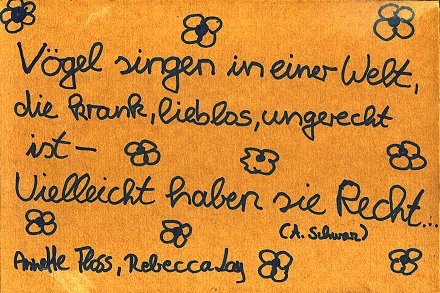 Vögel singen in einer Welt,
die krank, lieblos, ungerecht
ist –
Vielleicht haben sie Recht...
(A. Schwarz)
Annette Floss, Rebecca Lay